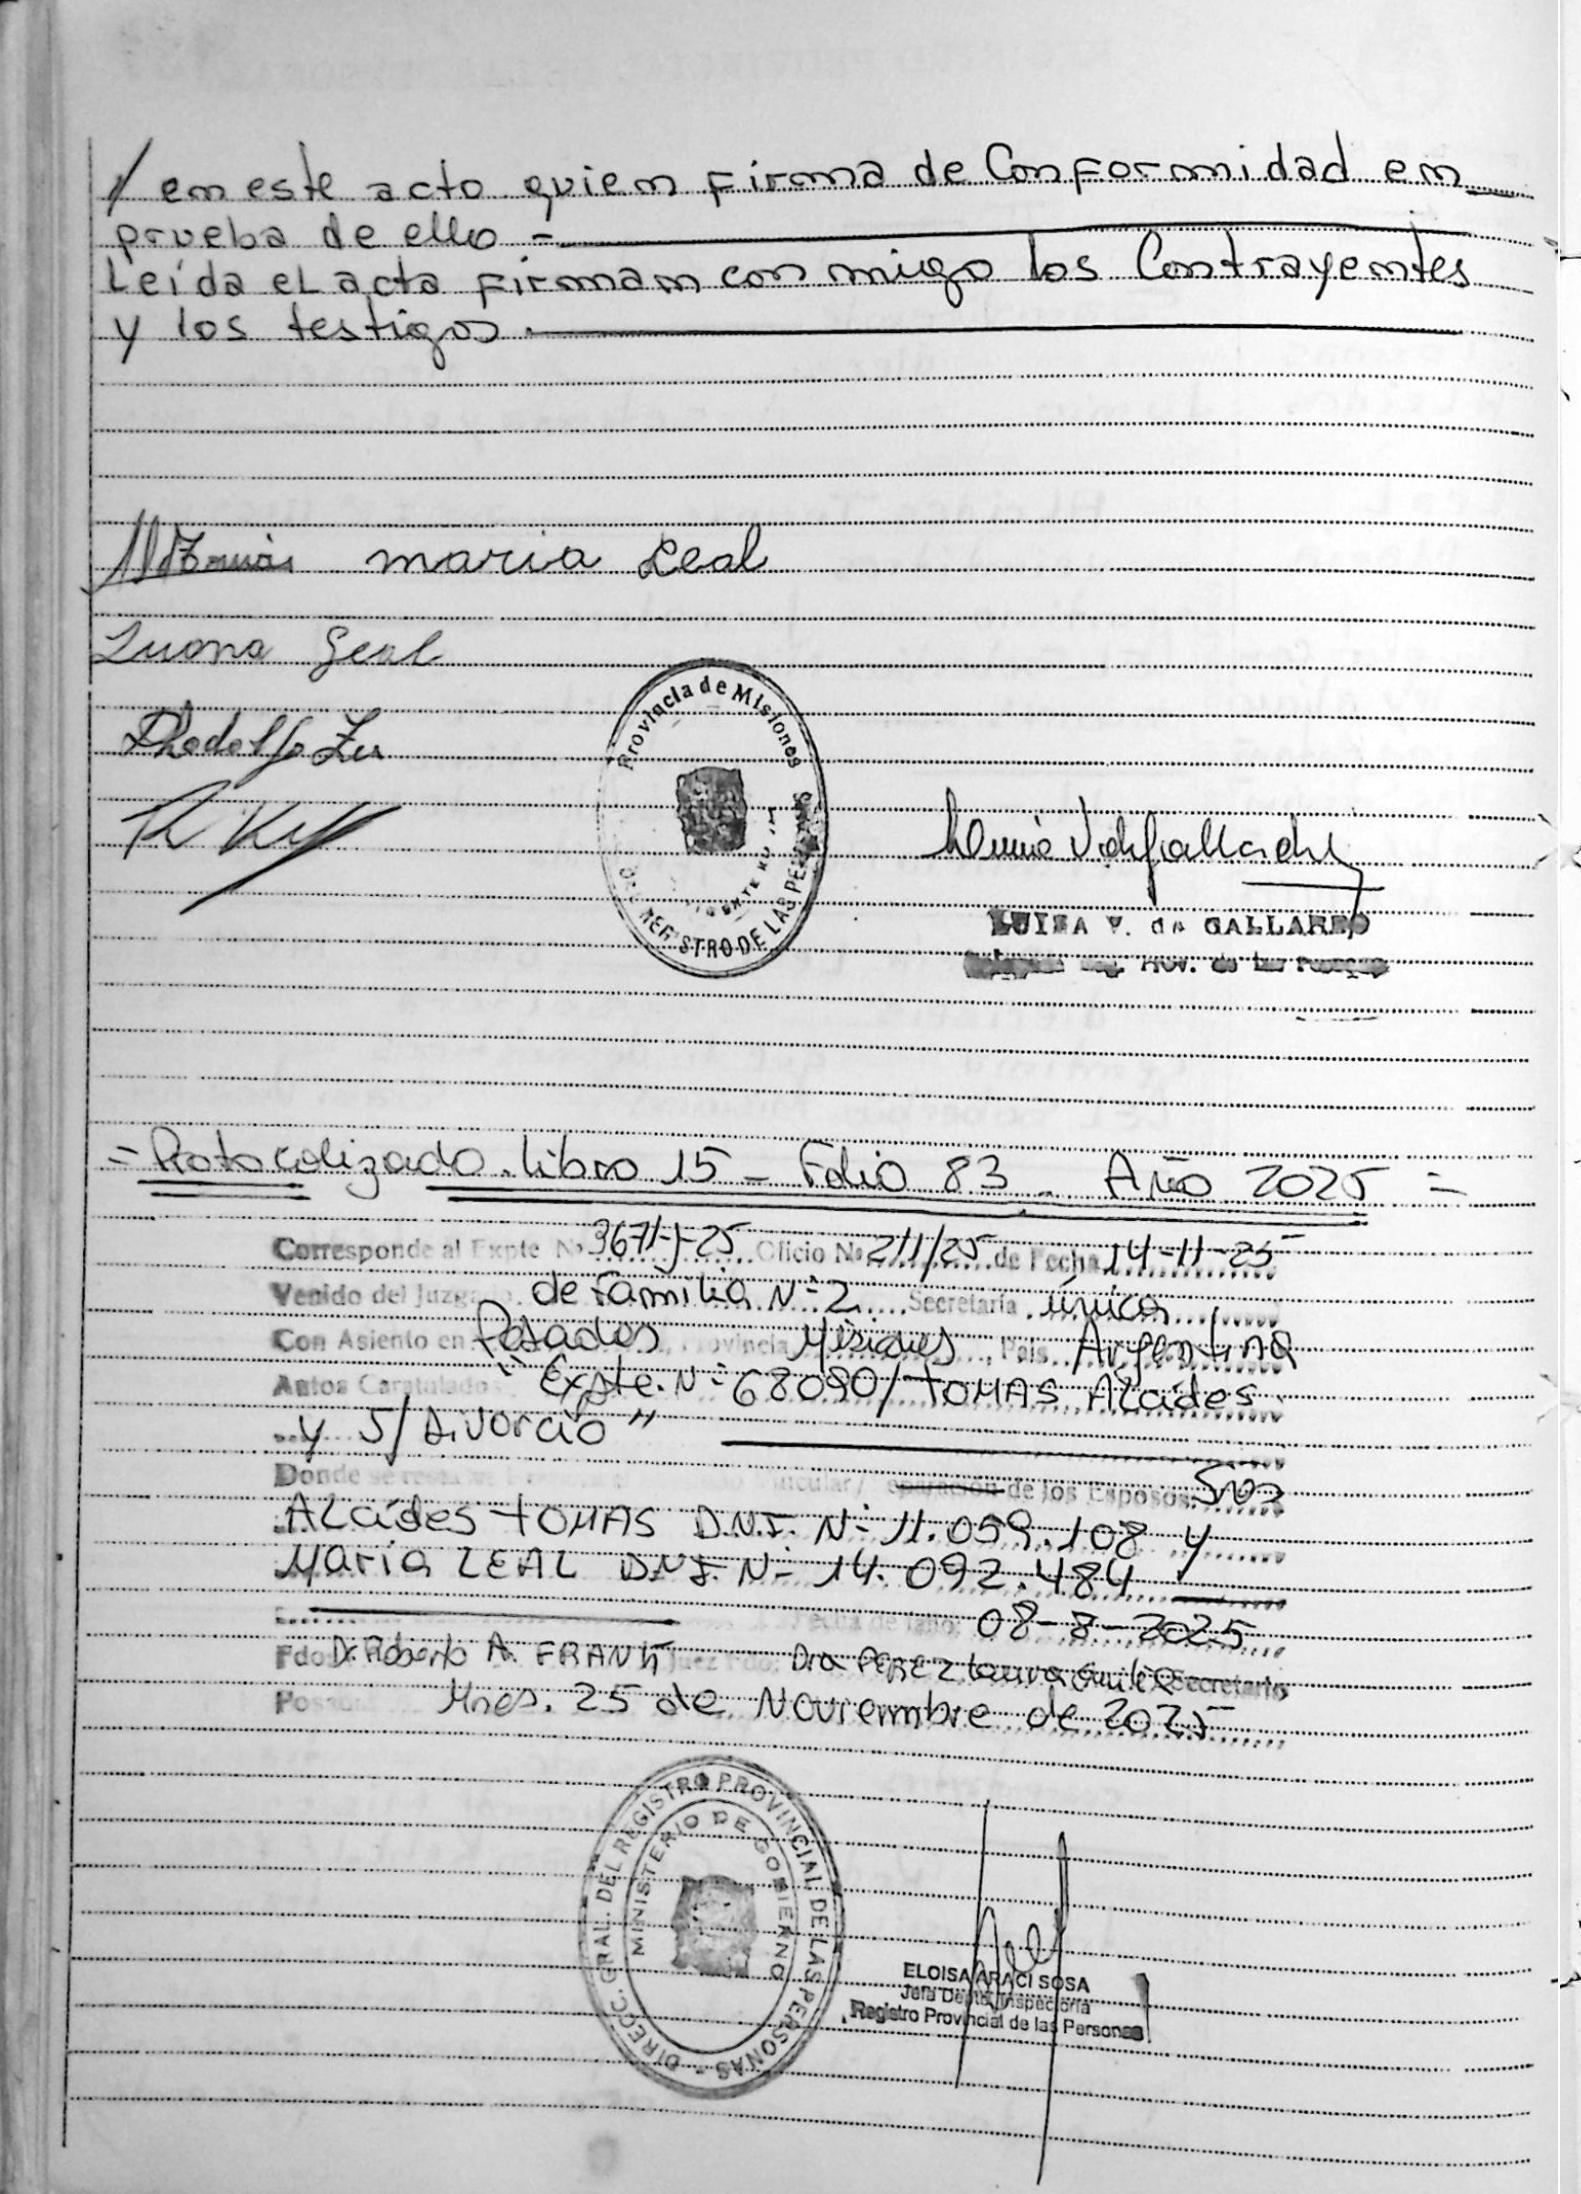 / en este acto quien firma de Conformidad en
prueba de ello -
Leída el acta firman conmigo los Contrayentes
y los testigos.
maria Leal
Juana Leal
Rhodolfo
Provincia de Misiones
REGISTRO DE LAS PERSONAS
LUISA V. de GALLARDO
Prov. de las Personas
= Protocolizado. Libro 15 - Folio 83. Año 2025 =
Corresponde al Expte Nº 3671-J-25 Oficio Nº 211/25 de Fecha 14-11-25
Venido del Juzgado de Familia Nº 2 Secretaría única
Con Asiento en Posadas Provincia Misiones, País Argentina
Autos Caratulados "Expte. Nº 68090/TOMAS Alcides
y S/ divorcio"
Donde se Vincular / separación de los Esposos: Sres
Alcides TOMAS D.N.I. Nº 11.059.108 y
María LEAL D.N.I. Nº 14.092.484
Fecha de fallo: 08-8-2025
Fdo Dr. Roberto A. Juez Fdo: Dra PEREZ Laura Secretario
Posadas Mnes. 25 de Noviembre de 2025
DIRECC. GRAL. DEL REGISTRO PROVINCIAL DE LAS PERSONAS -
MINISTERIO DE GOBIERNO
ELOISA ARACI SOSA
Jefa Depto. Inspectoría
Registro Provincial de las Personas